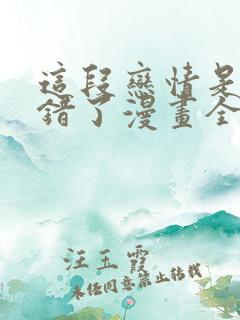 這段戀情是
錯了漫畫全
汪玉霞
未经同意禁止转载